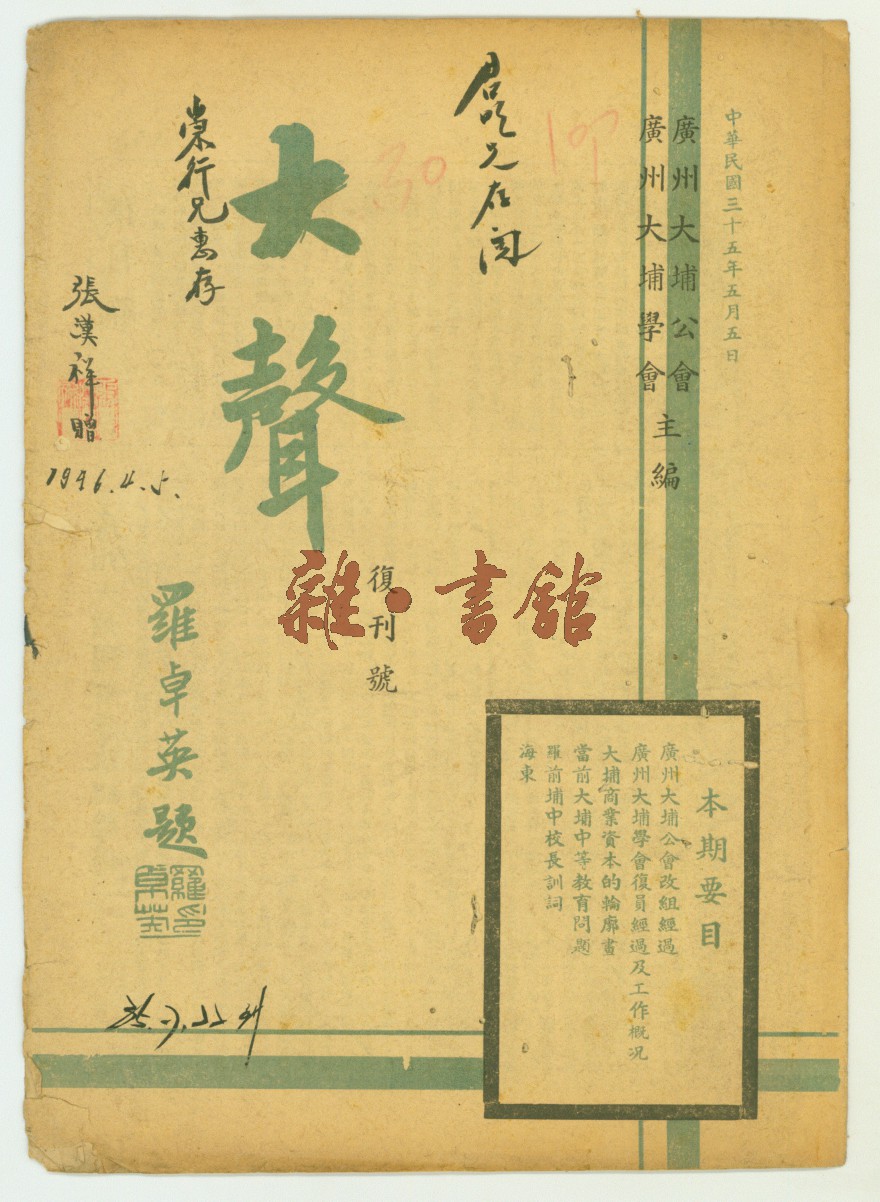 中華民國三十五年五月五日
廣州大埔公會
廣州大埔學會
主編
兄在閱
大聲
復刊號
崇行兄惠存
張漢祥贈
1946.4.5.
羅卓英題
羅卓英印
雜·書館
本期要目
廣州大埔公會改組經過
廣州大埔學會復員經過及工作概况
大埔商業資本的輪廓畫
當前大埔中等教育問題
羅前埔中校長訓詞
海東